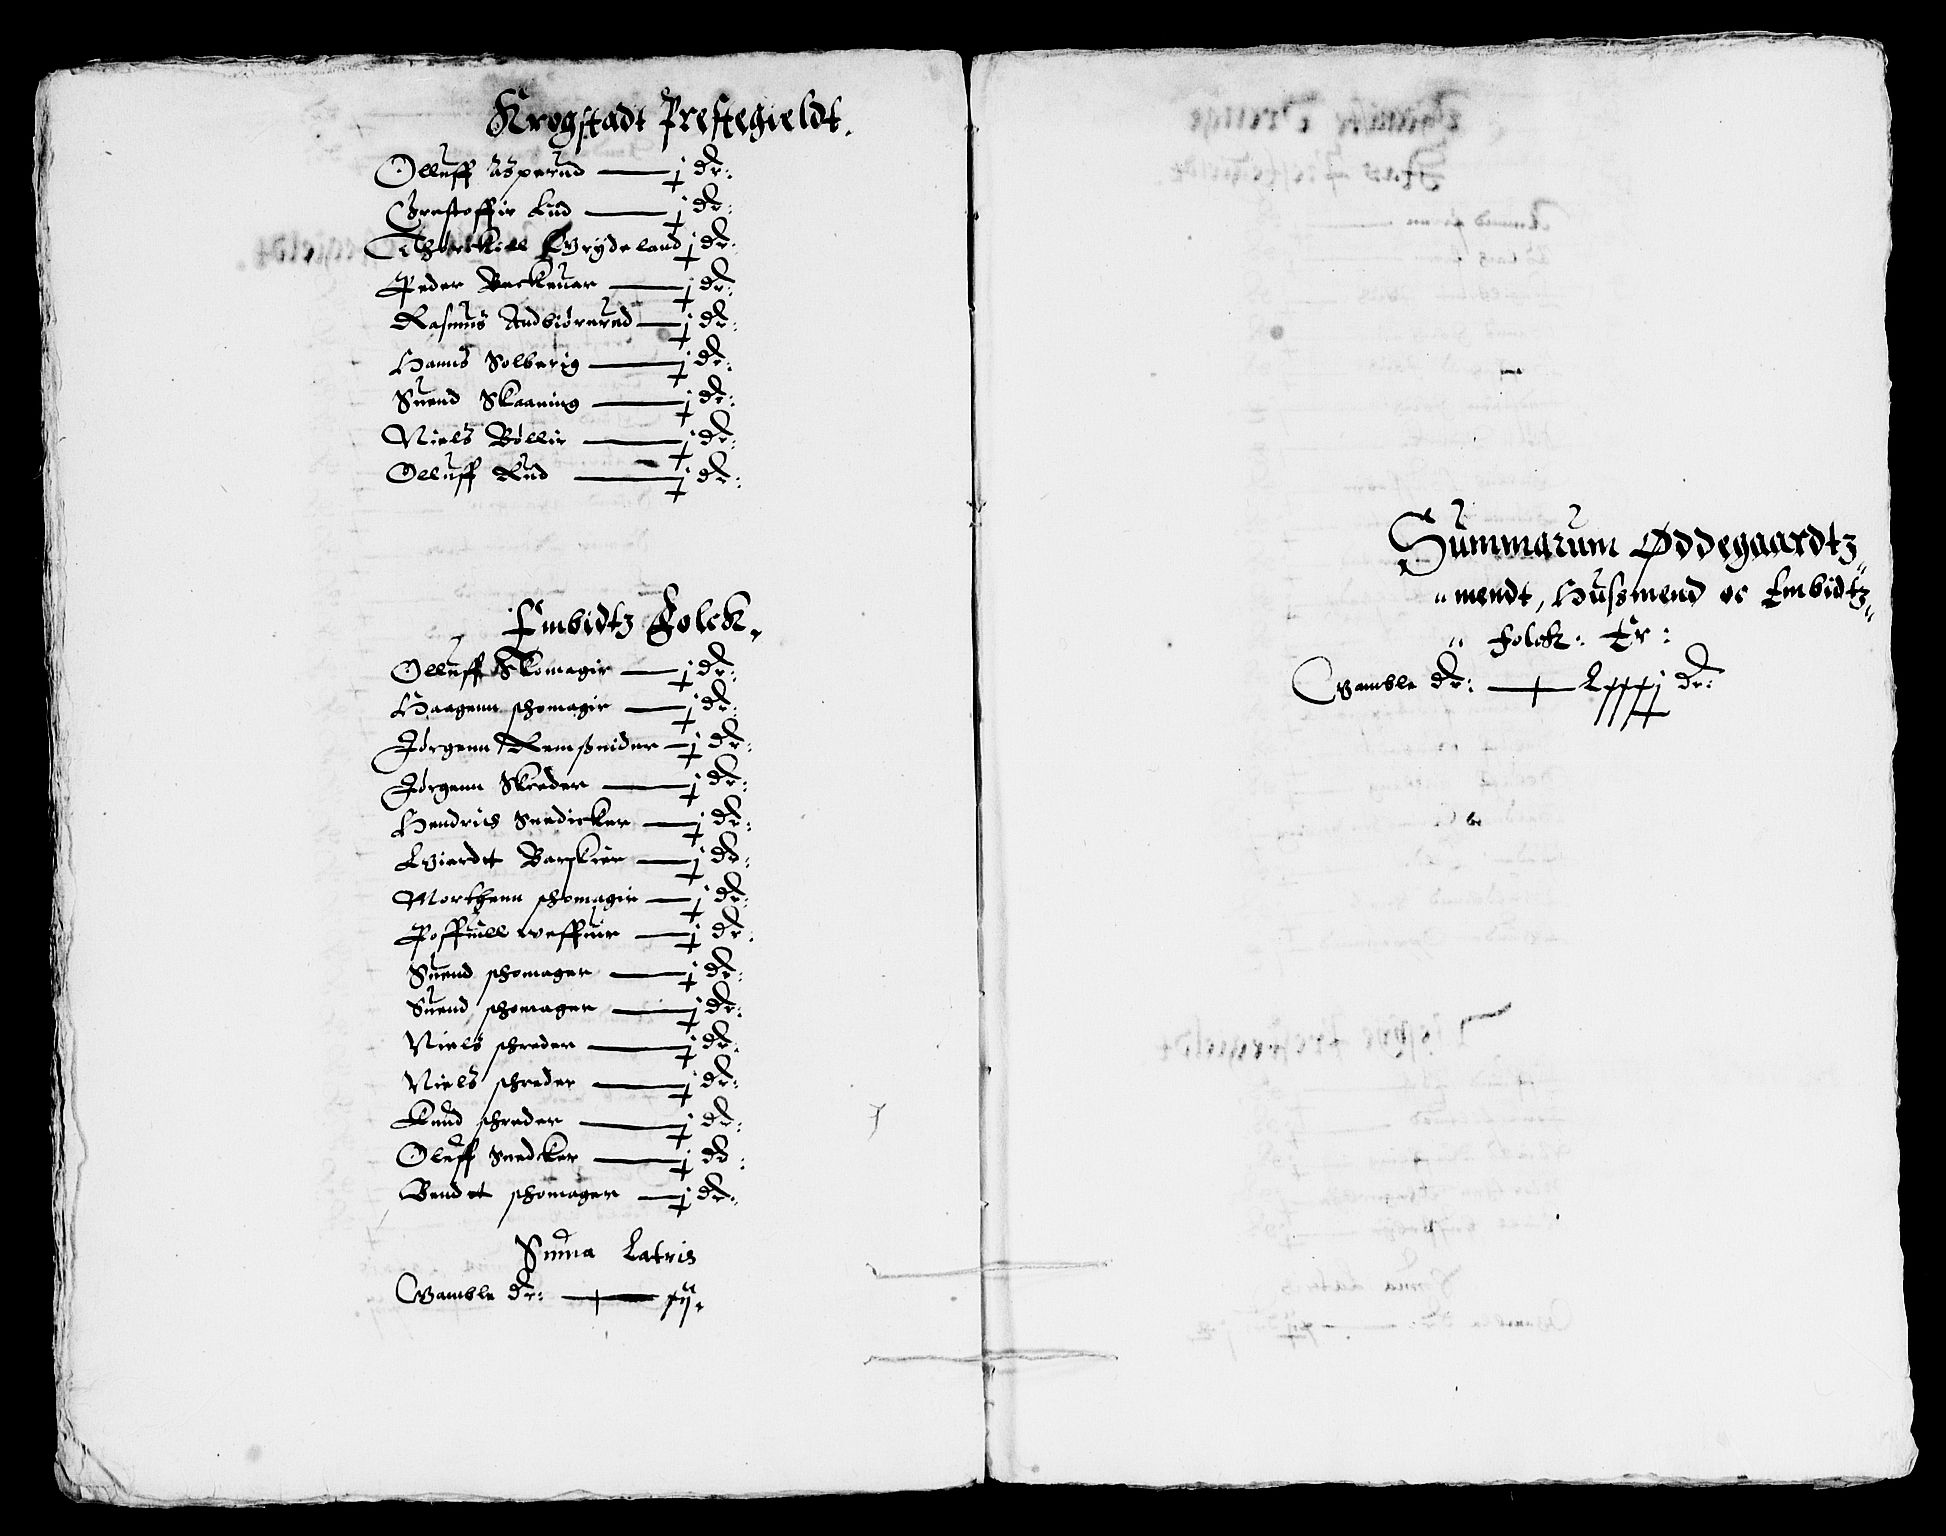 Krogstadt Prestegieldt.
Olluff Asperud — j dr:
Christoffer Lud — j dr:
Thorckill Grydeland j dr:
Peder Beckeuar — j dr:
Rasmus Andbiørnrud — j dr:
Hanns Solberig — j dr:
Suend Skaaning — j dr:
Niels Bøllir — j dr:
Olluff Rud — j dr:
Embidtz Folck.
Olluff Skomagir — j dr:
Haagenn schomagir — j dr:
Jørgenn Remsnider — j dr:
Jørgenn Skreder — j dr:
Hendrics Snedicker — j dr:
Gierdt Barskier — j dr:
Morthenn schomagir — j dr:
Poffuell weffuir — j dr:
Suend schomager — j dr:
Suend schomager — j dr:
Niels schreder — j dr:
Niels schreder — j dr:
Knud schreder — j dr:
Oluff Snedcker — j dr:
Bendt schomager — j dr:
Suma Latris
Gamble dr: — xij.
Summarum Øddegaardtz
mendt, Husmend oc Embidtz
Folck: Er:
Gamble dr: — Lxxxj dr: